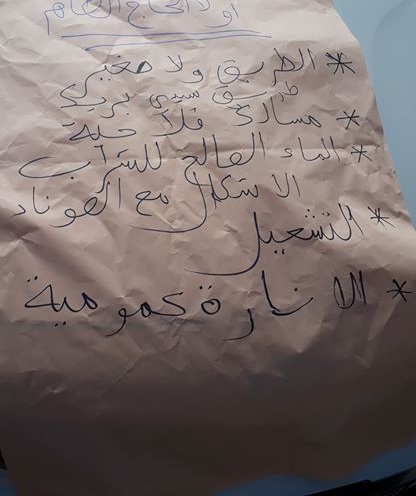 الحاج
* الطريق ولا
طريق سيدي
* مسالك فلاحية
* الماء الصالح للشراب
الاشكال مع الصوناد
* التشغيل
* الانارة عمومية